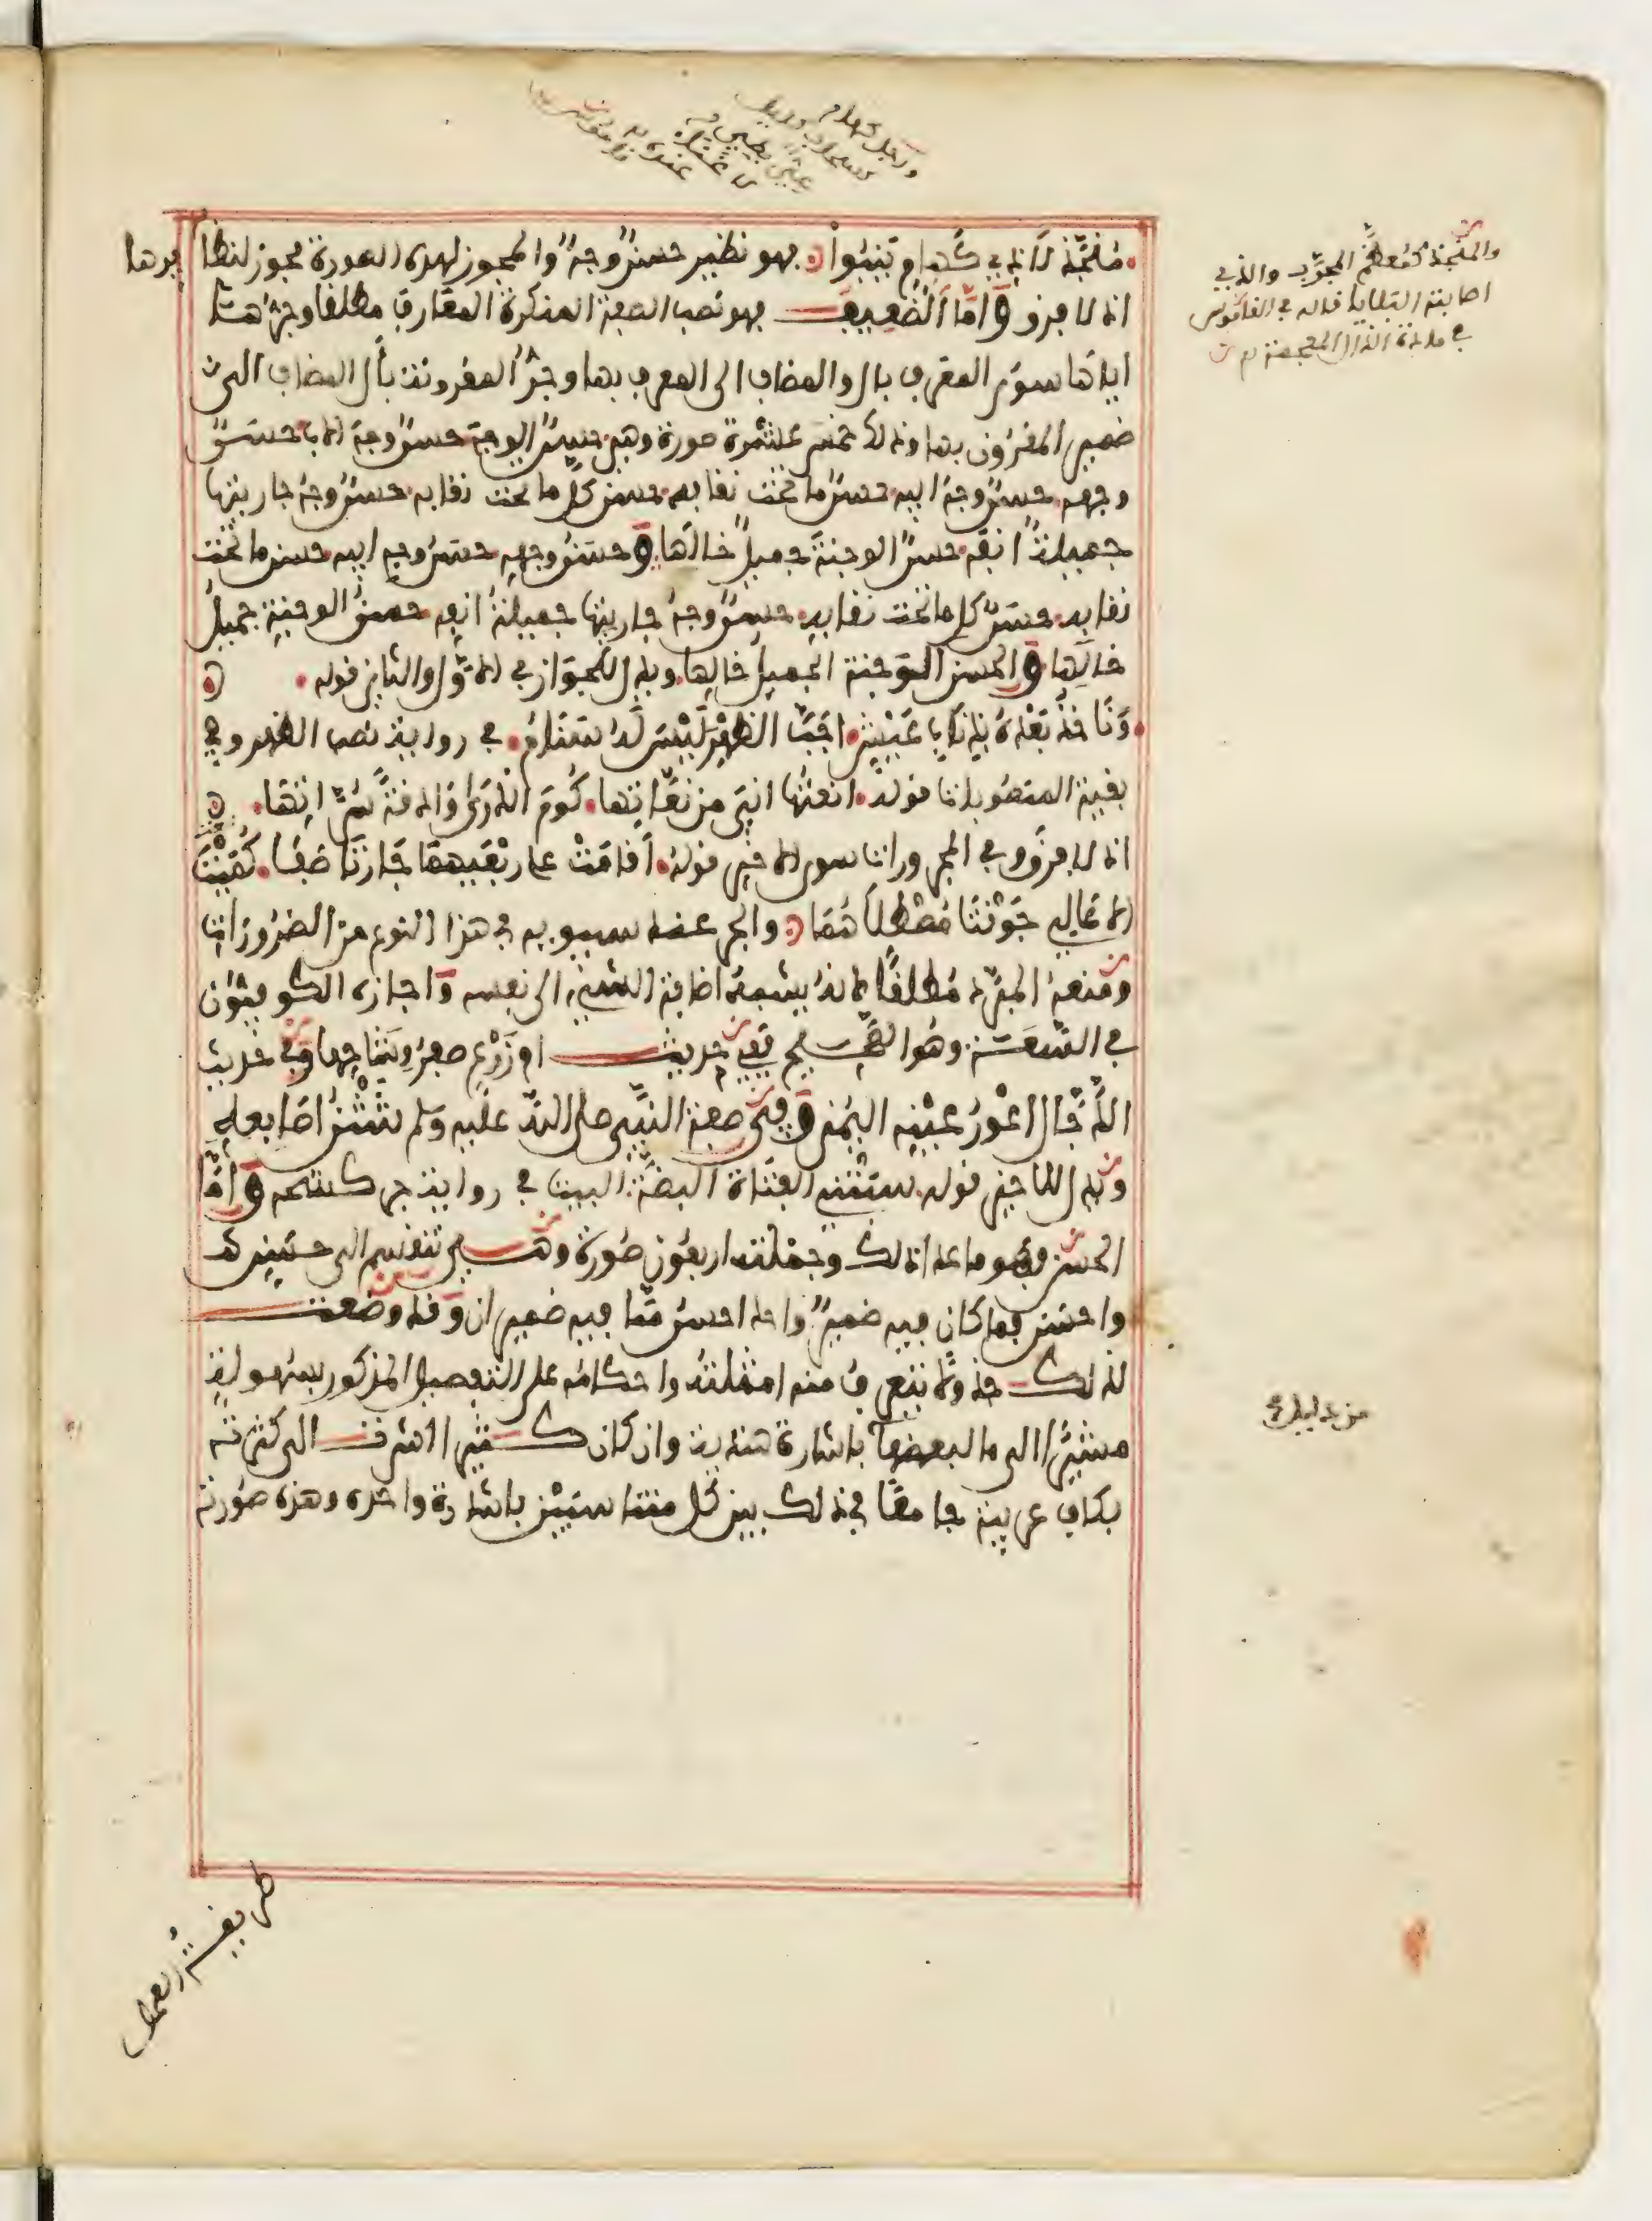 منجّذ لا ذي كهام ينبوا فهو نظير حسن وجه والمجوز لهذه الصورة مجوز لنظائرها
اذ لا فرق وامّا الضعيف فهو نصب الصفة المنكرة المعارف مطلقا وجرها
اياها سوى المعرف بال والمضاف الى المعرف بها وجر المقرونة بأل المضاف الى
ضمير المقرون بها وذلك خمس عشرة صورة وهي حسن الوجه حسن وجه الاب حسن
وجهه حسن وجه ابيه حسن ما تحت نقابه حسن كل ما تحت نقابه حسن وجه جاريتها
جميلة انفه حسن الوجنة جميل خالها وحسن وجهه حسن وجه ابيه حسن ما تحت
نقابه حسن كل ما تحت نقابه حسن وجه جاريتها جميلة انفه حسن الوجنة جميل
خالها والحسن الوجنة الجميل خالها ويدل للجواز في الاول والثاني قوله
ونأخذ بعده بذناب عيش اجبّ الظهر ليس له سنام في رواية نصب الظهر وفي
بقية المنصوبات قوله انعتها اني من نعّاتها كوم الذرى وادقة سرّاتها
اذ لا فرق وفي المجرورات سوى الاخير قوله اقامت على ربعيهما جارتا صفا كميتا
الاعالي جونتا مصطلاهما والجر عند سيبويه في هذا النوع من الضرورات
ومنعه المبرد مطلقا لانه يشبه اضافة الشيء الى نفسه واجازه الكوفيون
في السّعة وهو الصحيح ففي حديث ام زرع صفر وشاحها وفي حديث
الدّجال اعور عينه اليمنى وفي صفة النبي صلى الله عليه وسلم شثن اصابعه
ويدل للاخير قوله سبتني الفتاة البضة في رواية جر كشحه وامّا
الحسن فهو ما عدا ذلك وجملته اربعون صورة وهي تنقسم الى حسن
واحسن فما كان فيه ضمير واحد احسن ممّا فيه ضميران وقد وضعت
لذلك تتعرف منه امثلته واحكامه على التفصيل المذكور بسهولة
مشيرا الى ما لبعضها باشارة هندية وان كان كثيرا اشرت الى كثرته
بكاف عربية جامعا في ذلك بين كل متناسبين باشارة واحده وهذه صورته
والمنجذ كمعظم المجرّب والذي
اصابته البلايا قاله في القاموس
في مادة الذال المعجمة